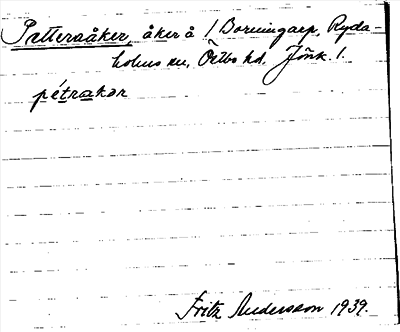 Petteraåker, åker å / Borningarp, Ryda-
holms sn, Östbo hd. Jönk. l.
pétrakər
Fritz Andersson 1939.